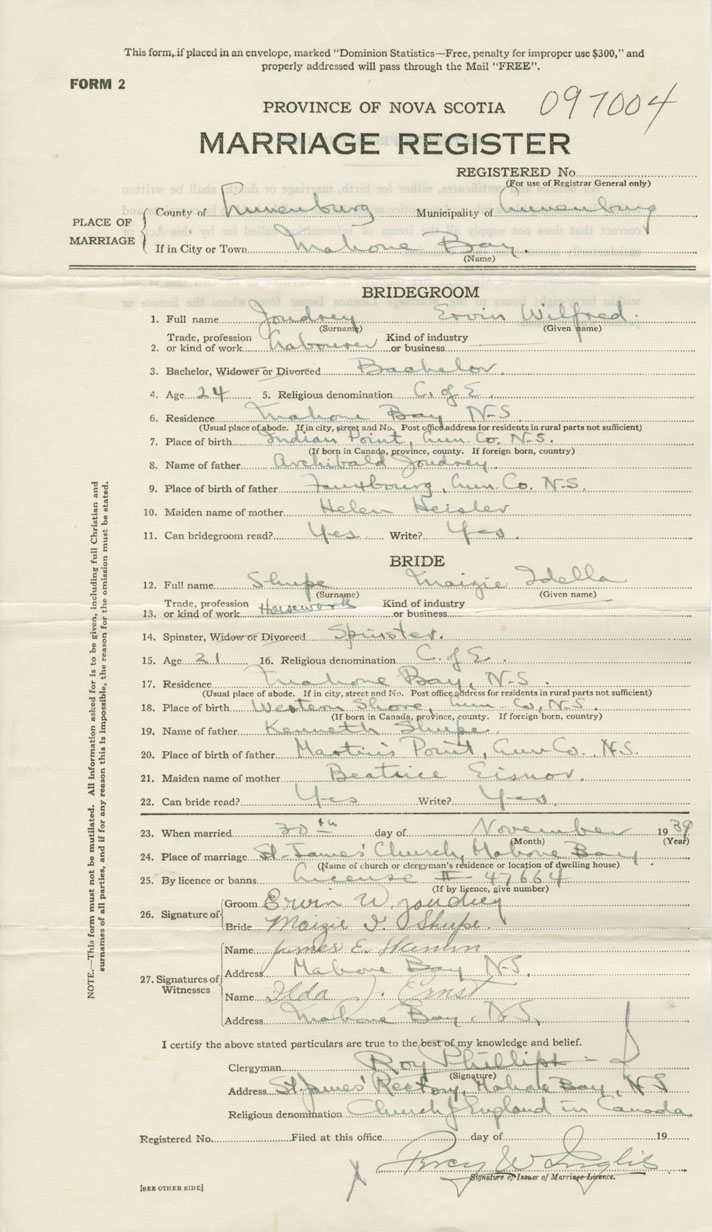 This form, if placed in an envelope, marked "Dominion Statistics—Free, penalty for improper use $300," and
properly addressed will pass through the Mail "FREE".
FORM 2
PROVINCE OF NOVA SCOTIA 097004
MARRIAGE REGISTER
REGISTERED No.
(For use of Registrar General only)
PLACE OF MARRIAGE
County of Lunenburg Municipality of Lunenburg
If in City or Town Mahone Bay.
(Name)
BRIDEGROOM
1. Full name Joudrey Ervin Wilfred.
(Surname) (Given name)
Trade, profession Kind of industry
2. or kind of work Labourer or business
3. Bachelor, Widower or Divorced Bachelor.
4. Age 24 5. Religious denomination C. of E.
6. Residence Mahone Bay, N-S.
(Usual place of abode. If in city, street and No. Post office address for residents in rural parts not sufficient)
7. Place of birth Indian Point, Lun. Co. N-S.
(If born in Canada, province, county. If foreign born, country)
8. Name of father Archibald Joudrey
9. Place of birth of father Fauxbourg, Lun. Co. N-S.
10. Maiden name of mother Helen Heisler
11. Can bridegroom read? Yes Write? Yes.
BRIDE
12. Full name Shupe Maizie Idella
(Surname) (Given name)
Trade, profession Kind of industry
13. or kind of work Housework or business
14. Spinster, Widow or Divorced Spinster.
15. Age 21 16. Religious denomination C. of E.
17. Residence Mahone Bay, N-S.
(Usual place of abode. If in city, street and No. Post office address for residents in rural parts not sufficient)
18. Place of birth Western Shore, Lun-Co, N.S.
(If born in Canada, province, county. If foreign born, country)
19. Name of father Kenneth Shupe.
20. Place of birth of father Martin's Point, Lun Co. N.S.
21. Maiden name of mother Beatrice Eisnor.
22. Can bride read? Yes Write? Yes.
23. When married 30th day of November 1939
(Month) (Year)
24. Place of marriage St. James' Church, Mahone Bay.
(Name of church or clergyman's residence or location of dwelling house)
25. By licence or banns License # 47664
(If by licence, give number)
26. Signature of
Groom Ervin W. Joudrey
Bride Maizie I. Shupe.
27. Signatures of Witnesses
Name James E.
Address Mahone Bay N-S.
Name Ilda J. Ernst
Address Mahone Bay, N.S.
I certify the above stated particulars are true to the best of my knowledge and belief.
Clergyman Roy Phillips
(Signature)
Address St. James' Rectory, Mahone Bay, N S
Religious denomination Church of England in Canada
Registered No. Filed at this office day of 19
Percy W Inglis
Signature of Issuer of Marriage Licence.
[SEE OTHER SIDE]
NOTE.—This form must not be mutilated. All information asked for is to be given, including full Christian and
surnames of all parties, and if for any reason this is impossible, the reason for the omission must be stated.